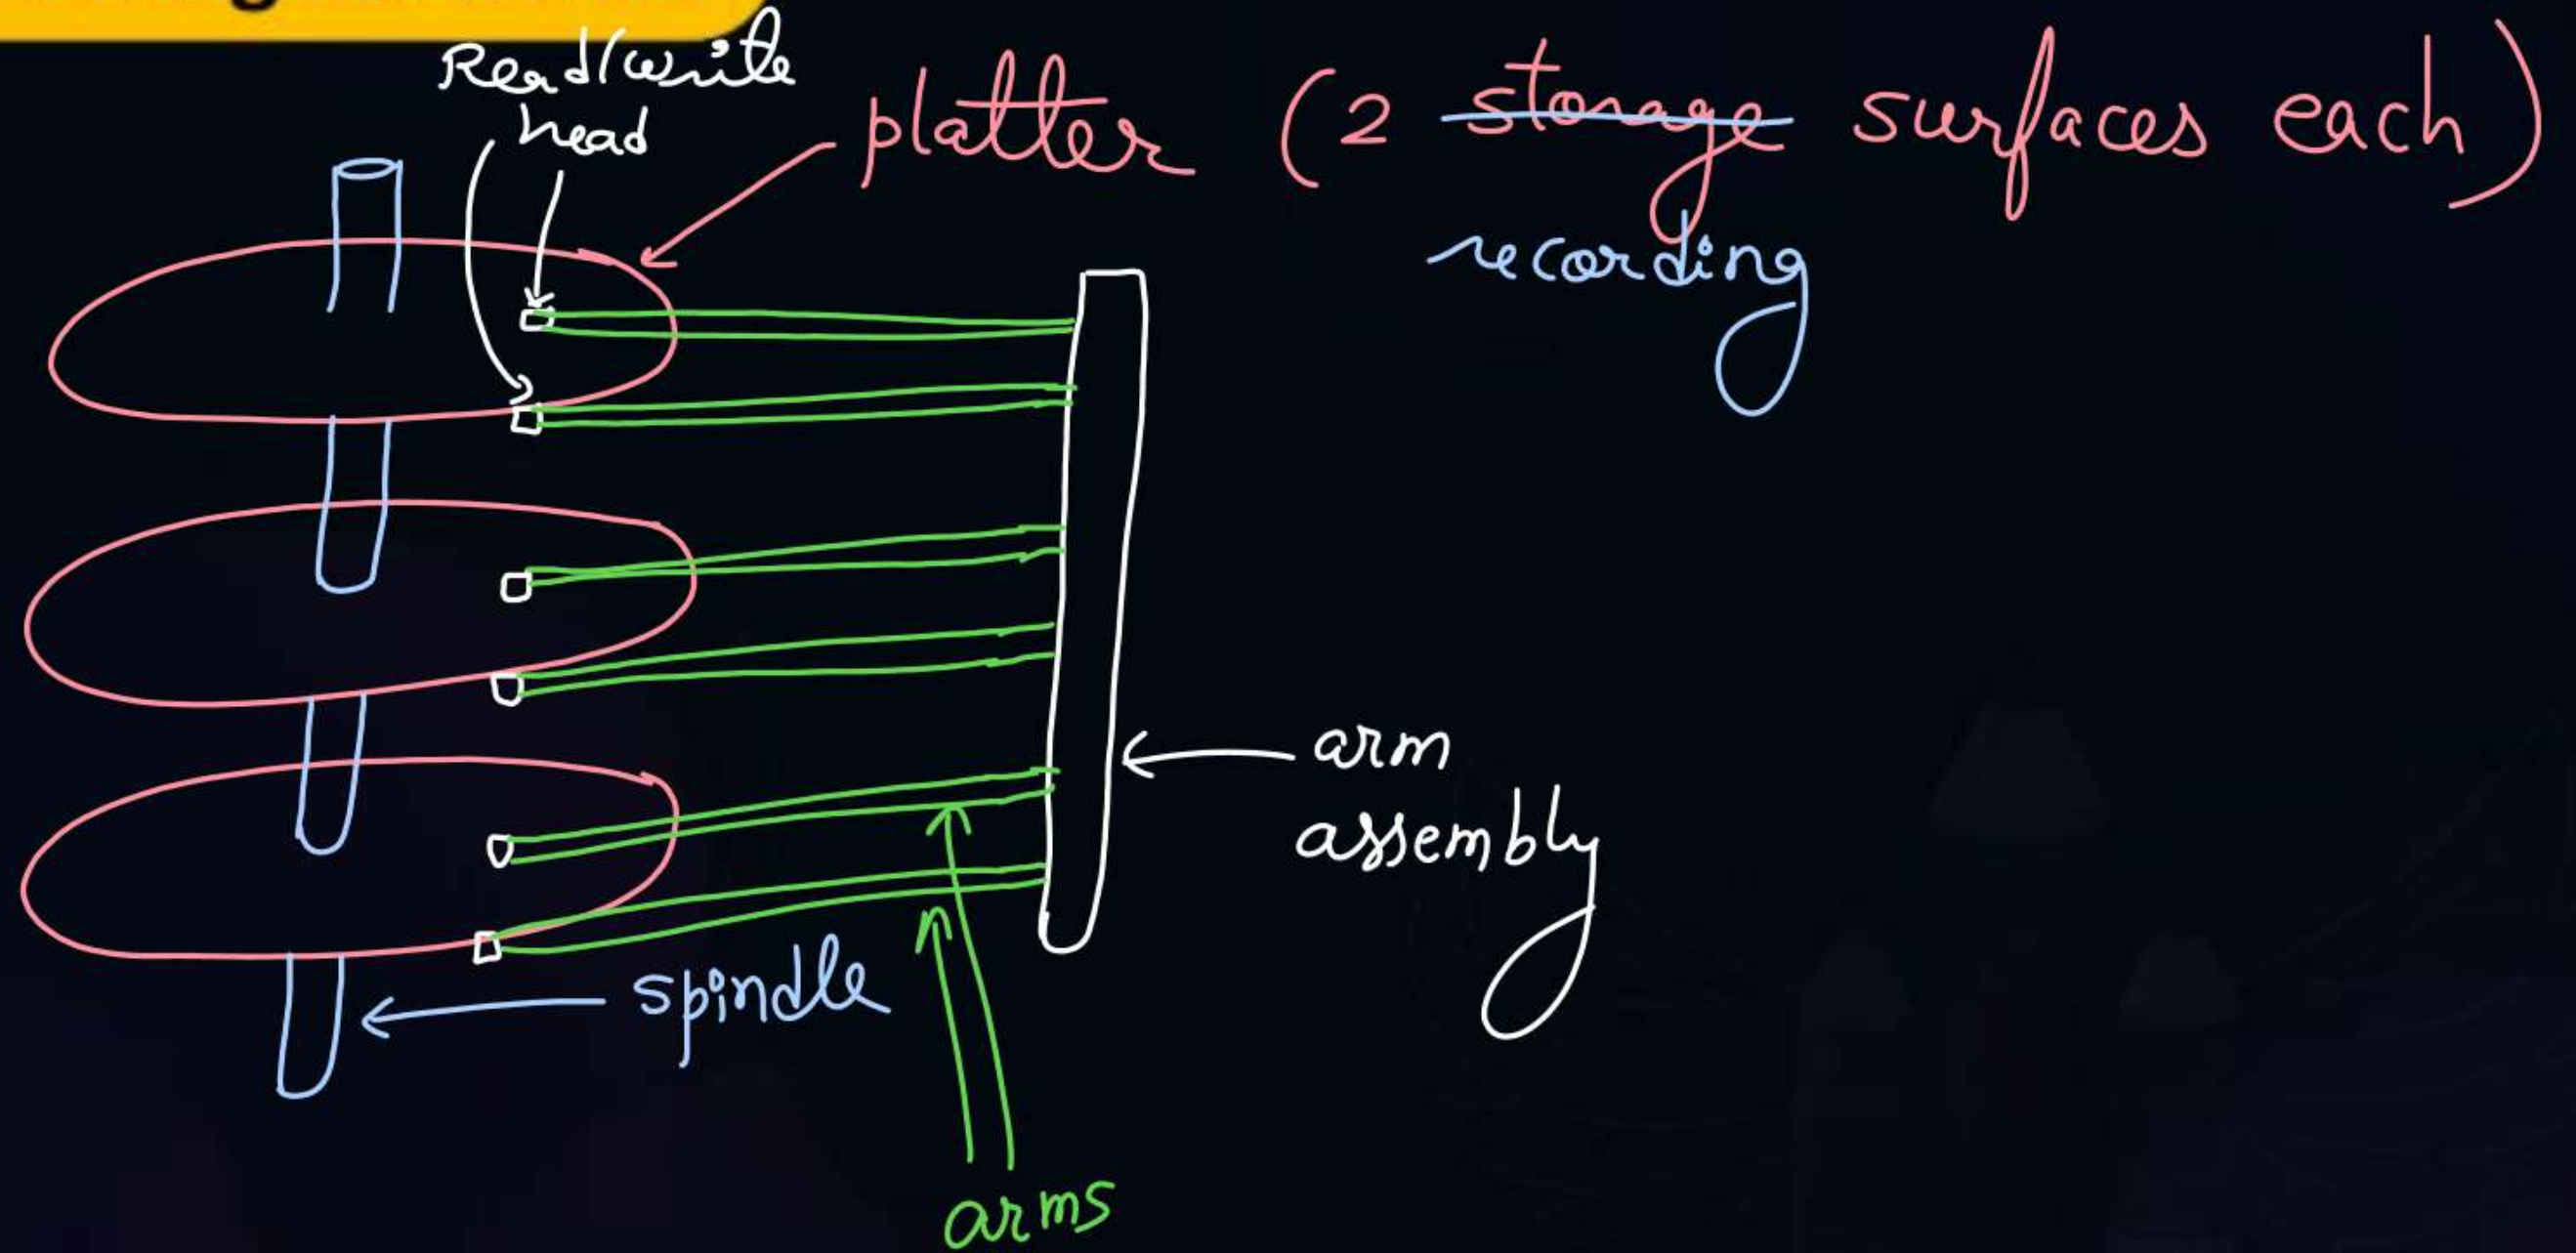 Read/write
head
platter (2 storage surfaces each)
recording
arm
assembly
spindle
arms